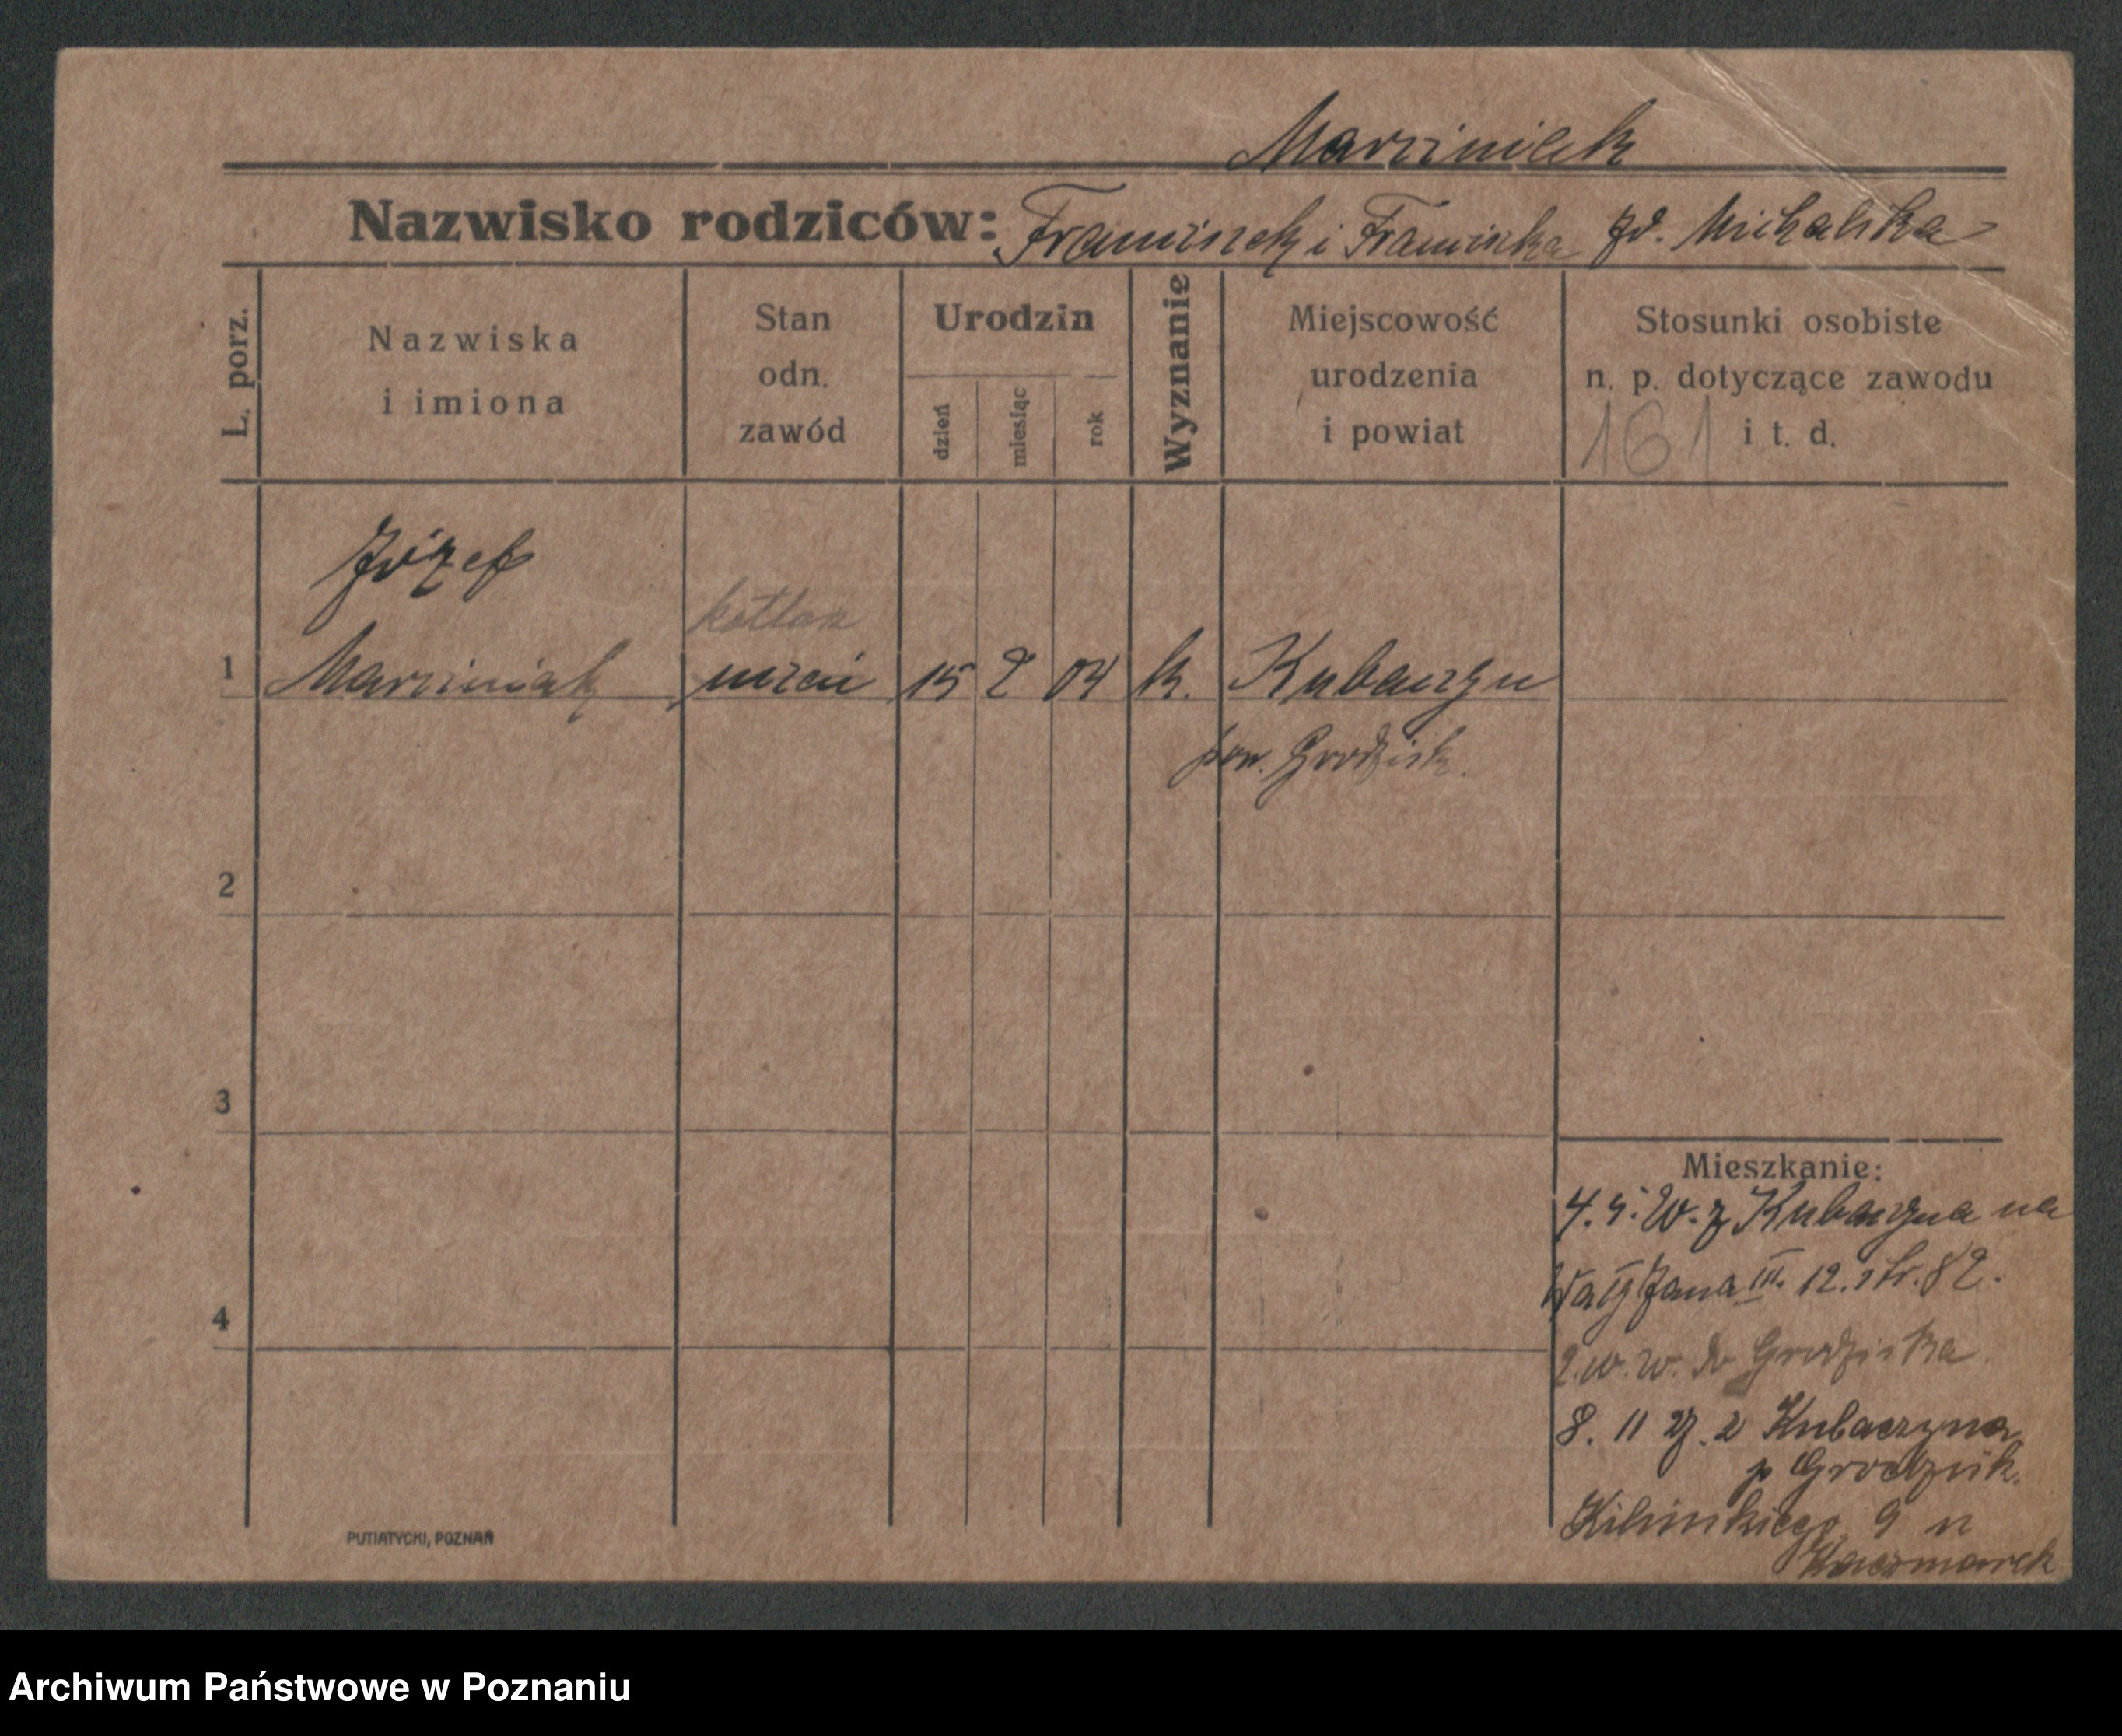 Marciniak
Nazwisko rodziców: Franciszek i Franciszka zd. Michalska
L. porz.
Nazwiska
i imiona
Stan
odn.
zawód
Urodzin
dzień
miesiąc
rok
Wyznanie
Miejscowość
urodzenia
i powiat
Stosunki osobiste
n. p. dotyczące zawodu
i t. d.
161
Józef
kotlarz
1 Marciniak uczeń 15 2 04 k. Kubaczyn
pow. Grodzisk.
2
3
4
Mieszkanie:
4. 5. W. z Kubaczyna na
Jana III. 12. str. 82.
2. w. W. do Grodziska.
8. 11 z Kubaczyna
p Grodzisk.
Kilińskiego 9 u
Kaczmarek
PUTIATYCKI, POZNAŃ
Archiwum Państwowe w Poznaniu